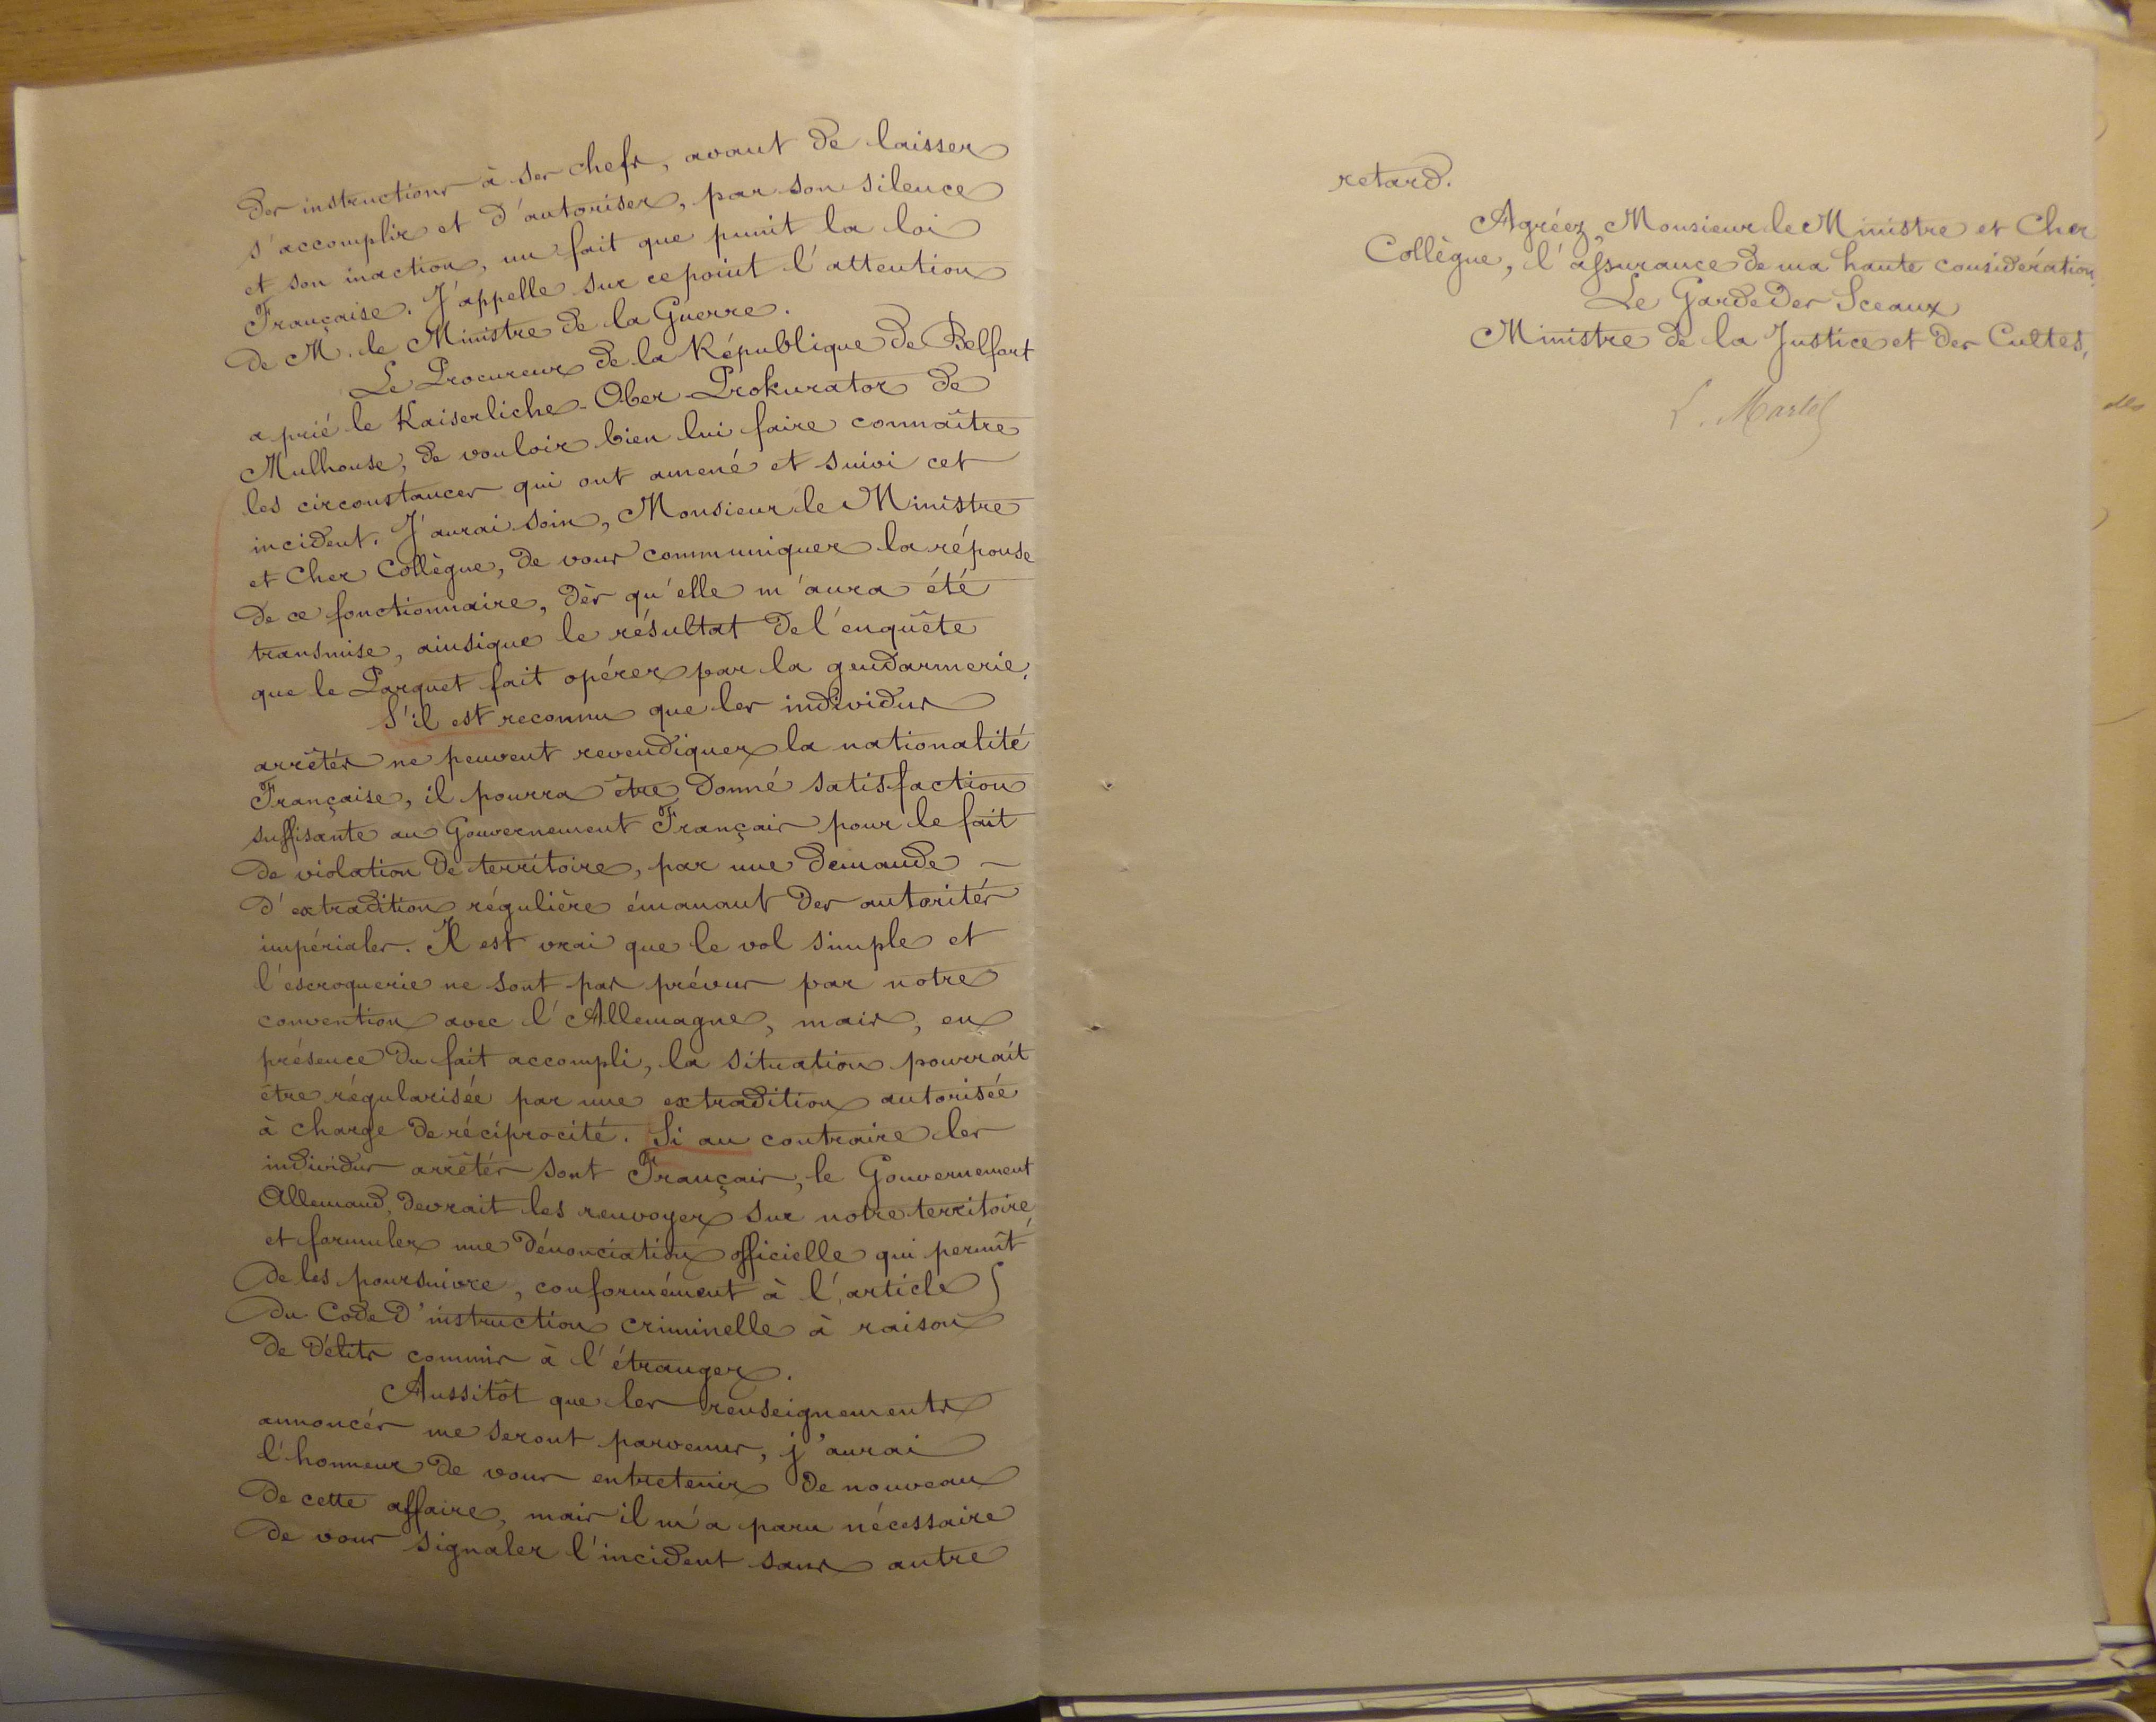 des instructions à ses chefs, avant de laisser
s'accomplir et d'autoriser, par son silence
et son inaction, un fait que punit la loi
Française. J'appelle sur ce point l'attention
de M. le Ministre de la Guerre.
Le Procureur de la République de Belfort
a prié le Kaiserliche-Ober-Prokurator de
Mulhouse, de vouloir bien lui faire connaître
les circonstances qui ont amené et suivi cet
incident. J'aurai soin, Monsieur le Ministre
et Cher Collègue, de vous communiquer la réponse
de ce fonctionnaire, dès qu'elle m'aura été
transmise, ainsi que le résultat de l'enquête
que le Parquet fait opérer par la gendarmerie.
S'il est reconnu que les individus
arrêtés ne peuvent revendiquer la nationalité
Française, il pourra être donné satisfaction
suffisante au Gouvernement Français pour le fait
de violation de territoire, par une demande
d'extradition régulière émanant des autorités
impériales. Il est vrai que le vol simple et
l'escroquerie ne sont pas prévus par notre
convention avec l'Allemagne, mais, en
présence du fait accompli, la situation pourrait
être régularisée par une extradition autorisée
à charge de réciprocité. Si au contraire les
individus arrêtés sont Français, le Gouvernement
Allemand, devrait les renvoyer sur notre territoire
et formuler une dénonciation officielle qui permît
de les poursuivre, conformément à l'article 5
du Code d'instruction criminelle à raison
de délits commis à l'étranger.
Aussitôt que les renseignements
annoncés me seront parvenus, j'aurai
l'honneur de vous entretenir de nouveau
de cette affaire, mais il m'a paru nécessaire
de vous signaler l'incident sans autre
retard.
Agréez, Monsieur le Ministre et Cher
Collègue, l'assurance de ma haute considération,
Le Garde des Sceaux
Ministre de la Justice et des Cultes,
L. Martel
des